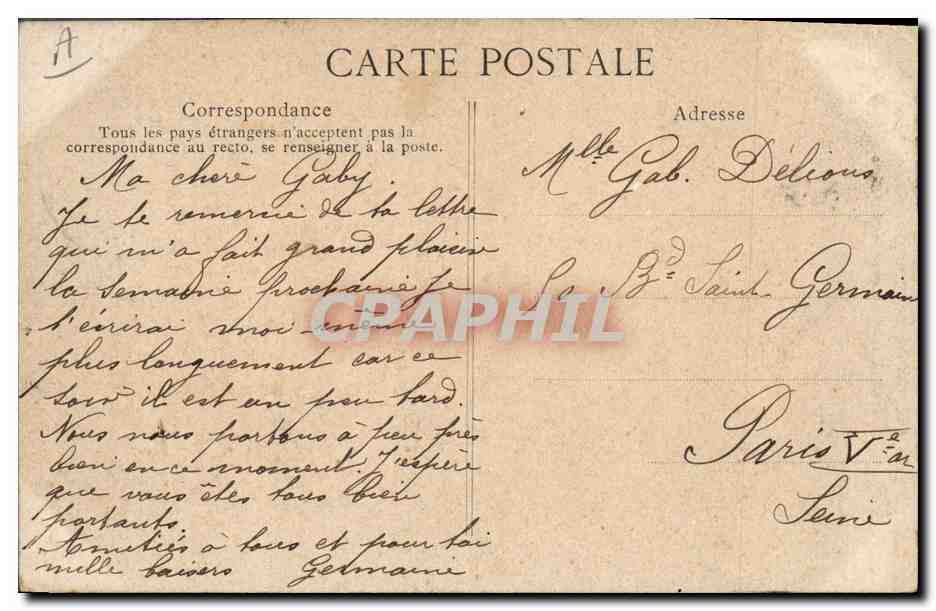 A
CARTE POSTALE
Correspondance
Tous les pays étrangers n'acceptent pas la
correspondance au recto, se renseigner à la poste.
Ma chère Gaby.
Je te remercie de ta lettre
qui m'a fait grand plaisir
la semaine prochaine je
t'écrirai moi-même
plus longuement car ce
soir il est un peu tard.
Nous nous portons à peu près
bien en ce moment. J'espère
que vous êtes tous bien
portants.
Amitiés à tous et pour toi
mille baisers Germaine
Adresse
Mlle Gab. Délious
Bd Saint-Germain
Paris Ve ar
Seine
CPAPHIL